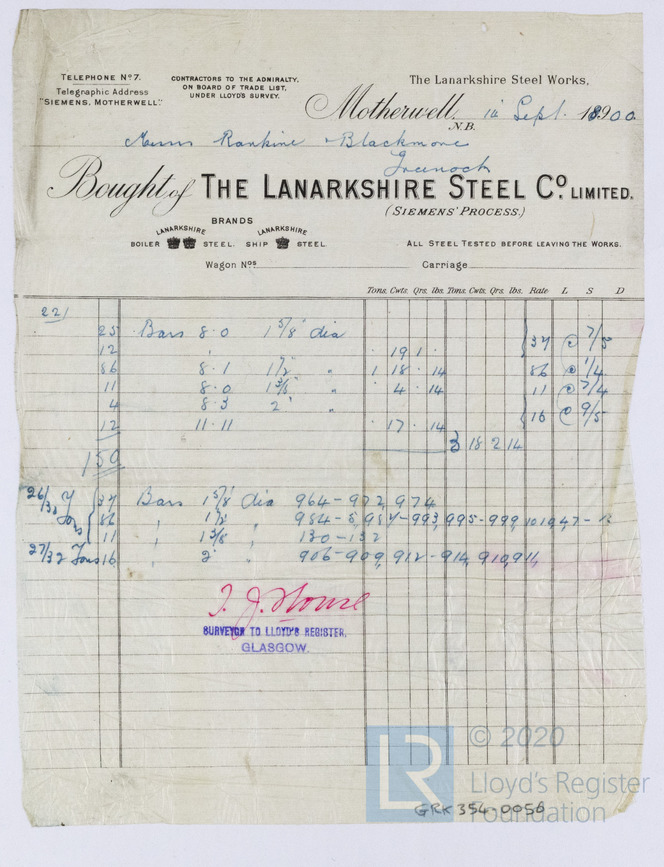 TELEPHONE Nº 7.
Telegraphic Address
"SIEMENS, MOTHERWELL."
CONTRACTORS TO THE ADMIRALTY,
ON BOARD OF TRADE LIST,
UNDER LLOYD'S SURVEY.
The Lanarkshire Steel Works,
Motherwell, Sept. 1900
N.B.
Messrs Rankine & Blackmore
Greenock
Bought of THE LANARKSHIRE STEEL Cº LIMITED.
(SIEMENS' PROCESS.)
BRANDS
LANARKSHIRE LANARKSHIRE
BOILER STEEL. SHIP STEEL.
ALL STEEL TESTED BEFORE LEAVING THE WORKS.
Wagon Nºs Carriage
Tons. Cwts. Qrs. lbs. Tons. Cwts. Qrs. lbs. Rate L S D
221
25 Bars 8.0 1 5/8" dia
12 " 19 1 . 37 @ 7/5
86 8.1 1 1/2" " 1 18 . 14 86 @ 1/4
11 8.0 1 3/8" " . 4 . 14 11 @ 7/4
4 8.3 2" "
12 11.11 . 17 . 14 16 @ 9/5
3 18 2 14
150
26/30 Tons
37 Bars 1 5/8" dia 964-972, 974
86 " 1 1/2" " 987-993, 995-999,
11 " 1 3/8" " 130-132
27/32 Tons 16 " 2" " 906-909, 912-914, 910, 911,
SURVEYOR TO LLOYD'S REGISTER,
GLASGOW.
LR
© 2020
Lloyd's Register
Foundation
GRK 354-0056